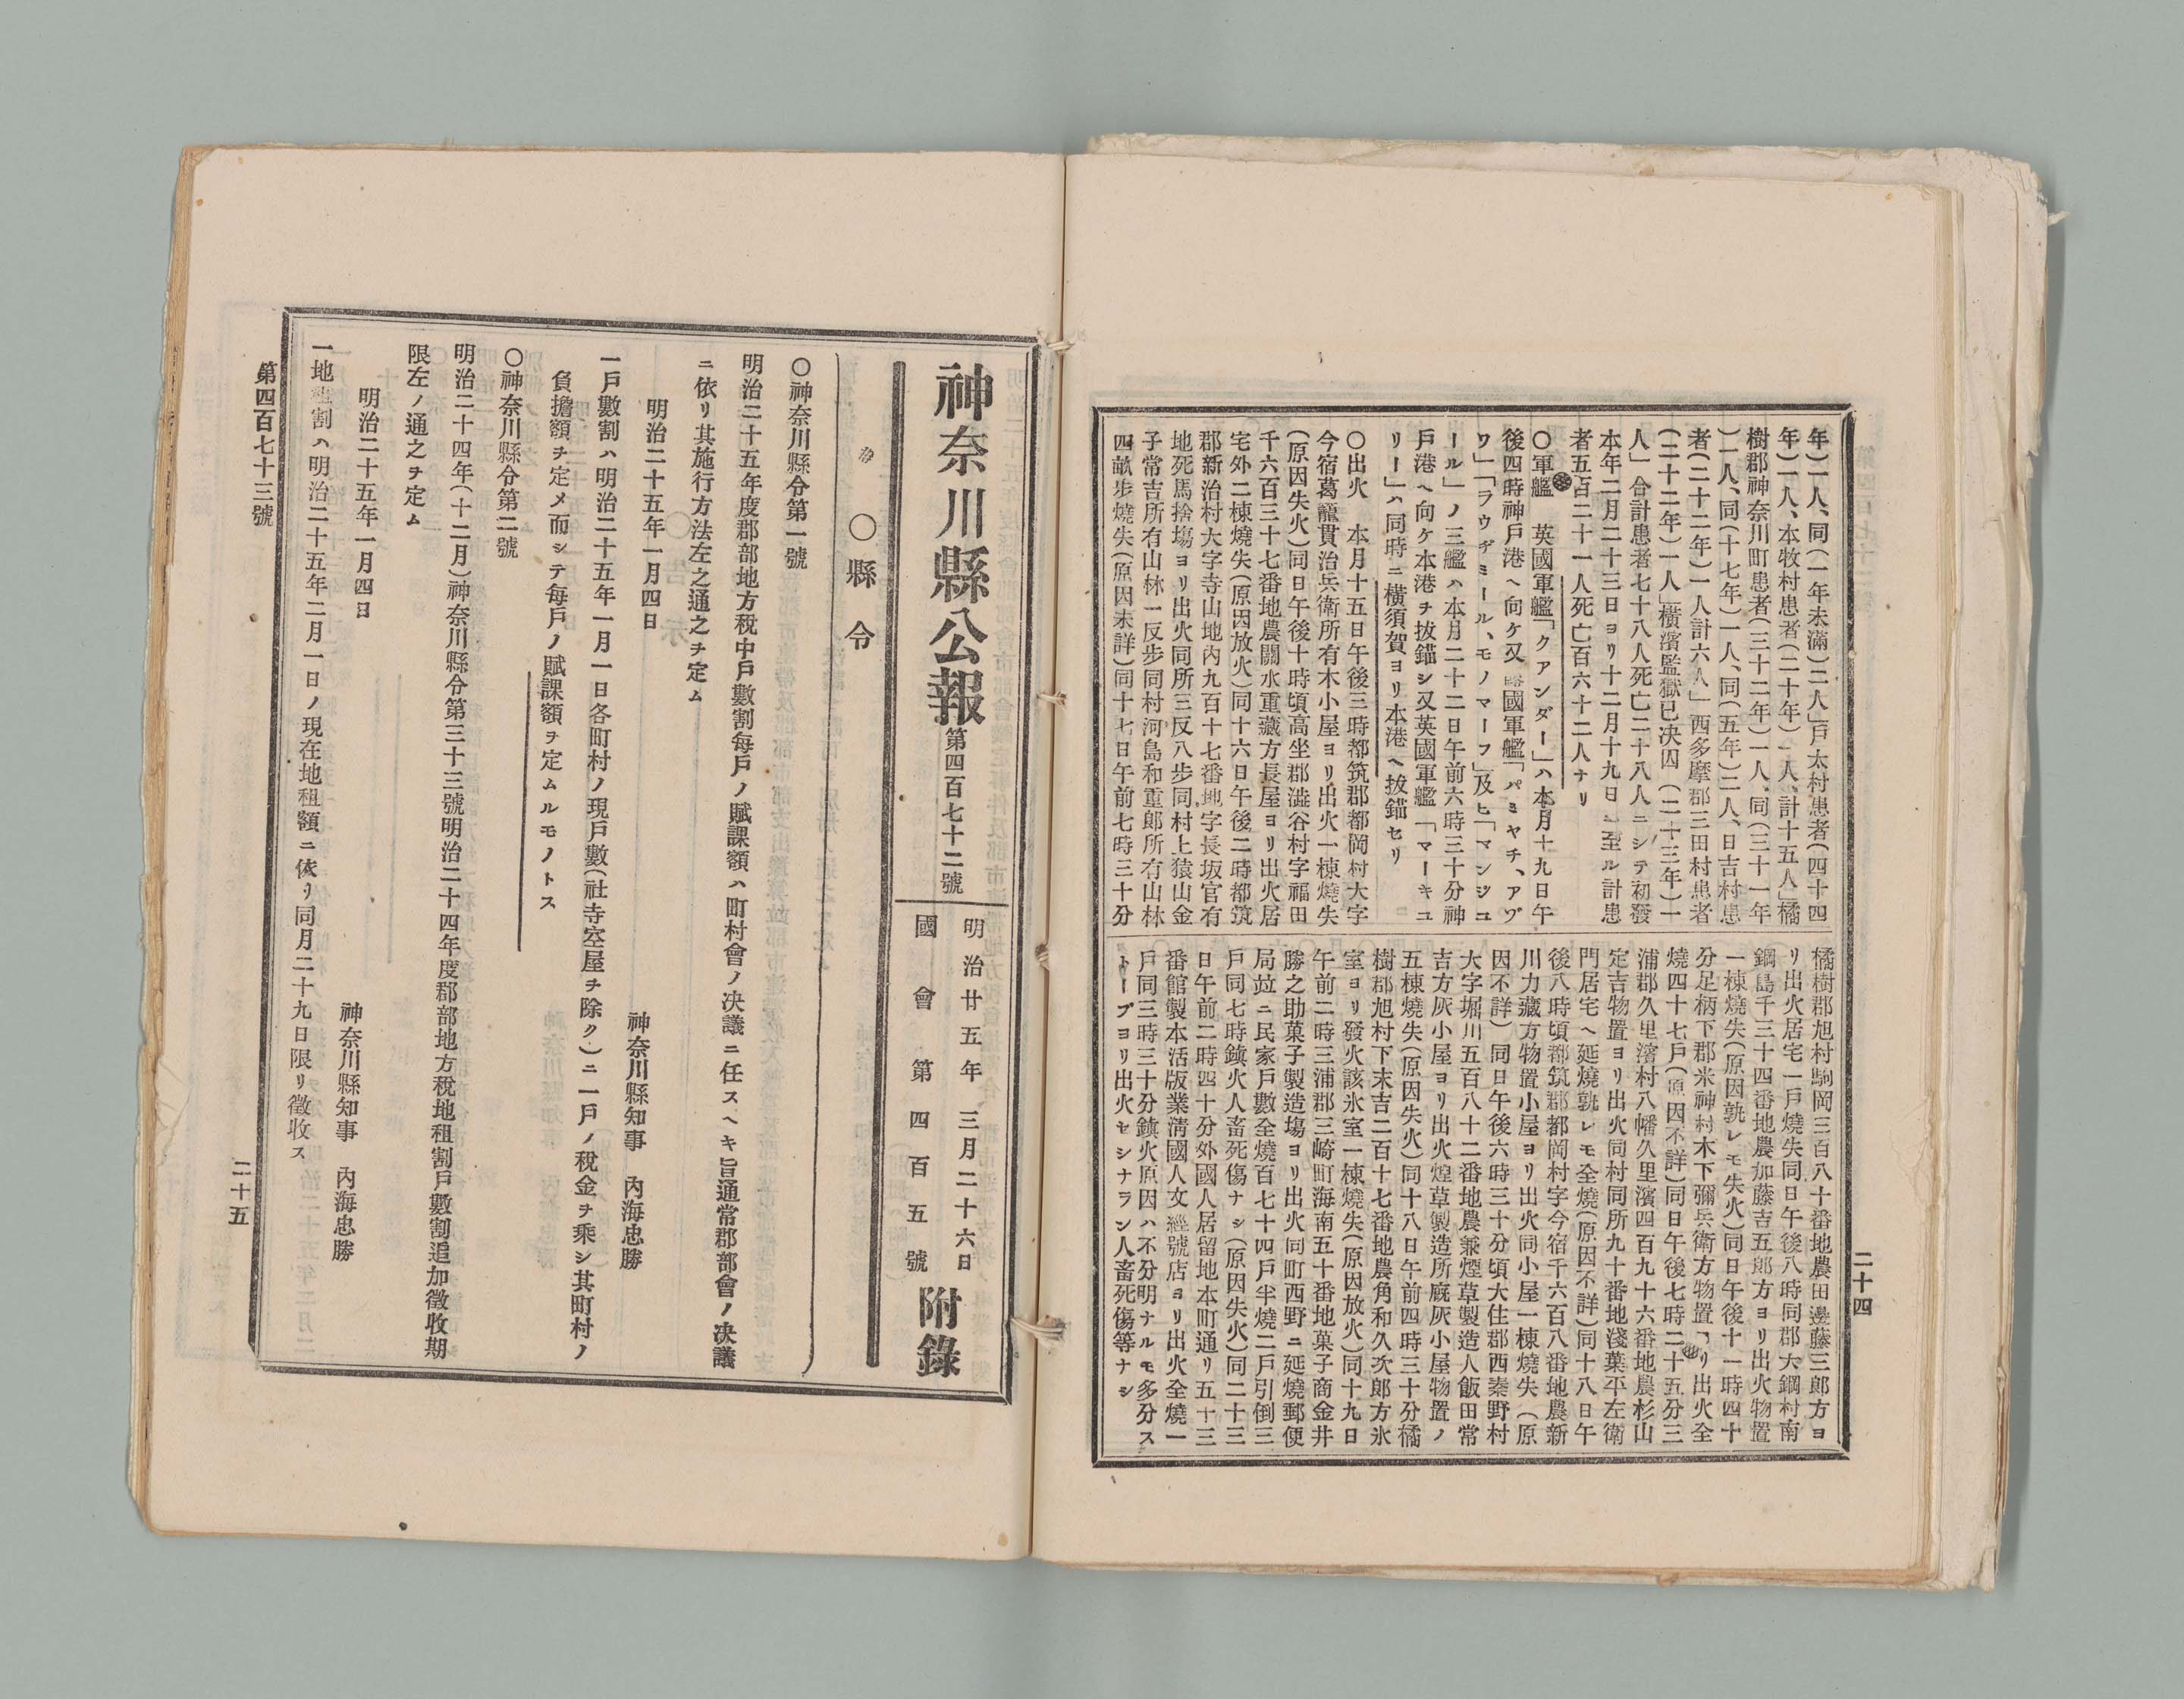 二十四
年)一人、同(一年未滿)二人」戸太村患者(四十四
年)一人、本牧村患者(二十年)一人、計十五人」橘
樹郡神奈川町患者(三十二年)一人、同(三十一年
)一人、同(十七年)一人、同(五年)二人、日吉村患
者(二十二年)一人計六人」西多摩郡三田村患者
(二十二年)一人」横濱監獄已决囚(二十三年)一
人」合計患者七十八人死亡二十八人ニシテ初發
本年二月二十三日ヨリ十二月十九日ニ至ル計患
者五百二十一人死亡百六十二人ナリ
〇軍艦 英國軍艦「クアンダー」ハ本月十九日午
後四時神戸港ヘ向ケ又露國軍艦「パミヤチ、アゾ
ワ」「ラウヂミール、モノマーフ」及ヒ「マンジユ
ール」ノ三艦ハ本月二十二日午前六時三十分神
戸港ヘ向ケ本港ヲ拔錨シ又英國軍艦「マーキユ
リー」ハ同時ニ横須賀ヨリ本港ヘ拔錨セリ
〇出火 本月十五日午後三時都筑郡都岡村大字
今宿葛籠貫治兵衛所有木小屋ヨリ出火一棟燒失
(原因失火)同日午後十時頃高坐郡澁谷村字福田
千六百三十七番地農關水重藏方長屋ヨリ出火居
宅外二棟燒失(原因放火)同十六日午後二時都筑
郡新治村大字寺山地内九百十七番地字長坂官有
地死馬捨塲ヨリ出火同所三反八歩同村上猿山金
子常吉所有山林一反歩同村河島和重郎所有山林
四畝歩燒失(原因未詳)同十七日午前七時三十分
橘樹郡旭村駒岡三百八十番地農田邊藤三郎方ヨ
リ出火居宅一戸燒失同日午後八時同郡大鋼村南
鋼島千三十四番地農加藤吉五郎方ヨリ出火物置
一棟燒失(原因孰レモ失火)同日午後十一時四十
分足柄下郡米神村木下彌兵衛方物置ヨリ出火全
燒四十七戸(原因不詳)同日午後七時二十五分三
浦郡久里濱村八幡久里濱四百九十六番地農杉山
定吉物置ヨリ出火同村同所九十番地淺葉平左衛
門居宅ヘ延燒孰レモ全燒(原因不詳)同十八日午
後八時頃都筑郡都岡村字今宿千六百八番地農新
川力藏方物置小屋ヨリ出火同小屋一棟燒失(原
因不詳)同日午後六時三十分頃大住郡西秦野村
大字堀川五百八十二番地農兼煙草製造人飯田常
吉方灰小屋ヨリ出火煌草製造所厩灰小屋物置ノ
五棟燒失(原因失火)同十八日午前四時三十分橘
樹郡旭村下末吉二百十七番地農角和久次郎方氷
室ヨリ發火該氷室一棟燒失(原因放火)同十九日
午前二時三浦郡三崎町海南五十番地菓子商金井
勝之助菓子製造塲ヨリ出火同町西野ニ延燒郵便
局竝ニ民家戸數全燒百七十四戸半燒二戸引倒三
戸同七時鎭火人畜死傷ナシ(原因失火)同二十三
日午前二時四十分外國人居留地本町通リ五十三
番館製本活版業淸國人文經號店ヨリ出火全燒一
戸同三時三十分鎭火原因ハ不分明ナルモ多分ス
トーブヨリ出火セシナラン人畜死傷等ナシ
神奈川縣公報 第四百七十二號
明治廿五年三月二十六日
國會第四百五號
附錄
〇縣令
〇神奈川縣令第一號
明治二十五年度郡部地方稅中戸數割每戸ノ賦課額ハ町村會ノ决議ニ任スヘキ旨通常郡部會ノ决議
ニ依リ其施行方法左之通之ヲ定ム
明治二十五年一月四日
神奈川縣知事 內海忠勝
一戸數割ハ明治二十五年一月一日各町村ノ現戸數(社寺空屋ヲ除ク)ニ一戸ノ稅金ヲ乘シ其町村ノ
負擔額ヲ定メ而シテ每戸ノ賦課額ヲ定ムルモノトス
〇神奈川縣令第二號
明治二十四年(十二月)神奈川縣令第三十三號明治二十四年度郡部地方稅地租割戸數割追加徵收期
限左ノ通之ヲ定ム
明治二十五年一月四日
神奈川縣知事 內海忠勝
一地租割ハ明治二十五年二月一日ノ現在地租額ニ依リ同月二十九日限リ徵收ス
第四百七十三號
二十五